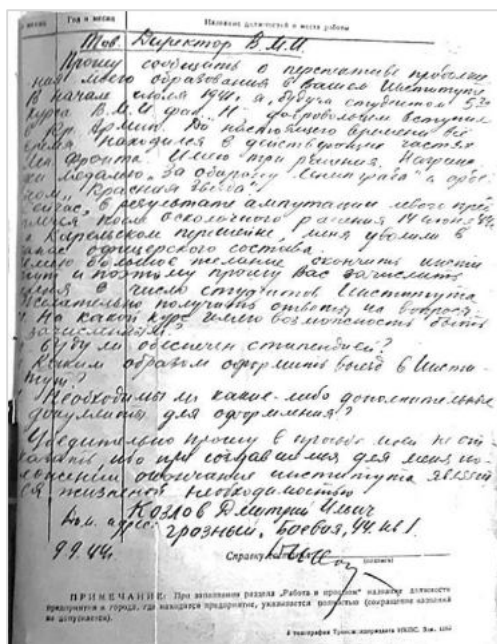 и месяц
Год и месяц
Название должностей и места работы
Тов. Директор В.М.И.
Прошу сообщить о перспективе продолже-
ния моего образования в Вашем Институте
В начале июля 1941, я, будучи студентом 5го
курса В.М.И. фак. Н. добровольцем вступил
в Кр. Армию. До настоящего времени всё
время находился в действующих частях
Лен фронта. Имею три ранения. Награж
медалью „За оборону Ленинграда“ и орде
ном „Красная Звезда“.
сейчас, в результате ампутации левого пред
после осколочного ранения 14 июня 44
на Карельском перешейке, меня уволили в
запас офицерского состава.
имею большое желание окончить инсти
тут и поэтому прошу Вас зачислить
меня в число студентов Института
желательно получить ответы на вопросы
На какой курс имею возможность быть
зачисленным?
буду ли обеспечен стипендией?
Каким образом оформить выезд в Инсти-
тут?
Необходимы ли какие-либо дополнительные
документы для оформления?
Убедительно прошу в просьбе моей не от-
казать, ибо при создавшимся для меня по-
ложении окончание института являет
ся жизненной необходимостью
Козлов Дмитрий Ильич
Дом. адрес: Грозный, Боевая, 44. кв 1.
9.9.44г.
Справку
(подпись)
ПРИМЕЧАНИЕ: При заполнении раздела „Работа в прошлом“ название должности
предприятия и города, где находится предприятие, указывается полностью (сокращение названий
не допускается).